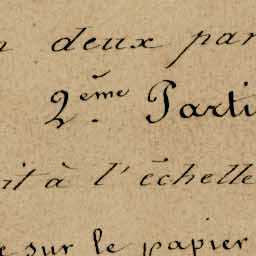 n deux par
2ème Parti
it à l'échelle
e sur le papier